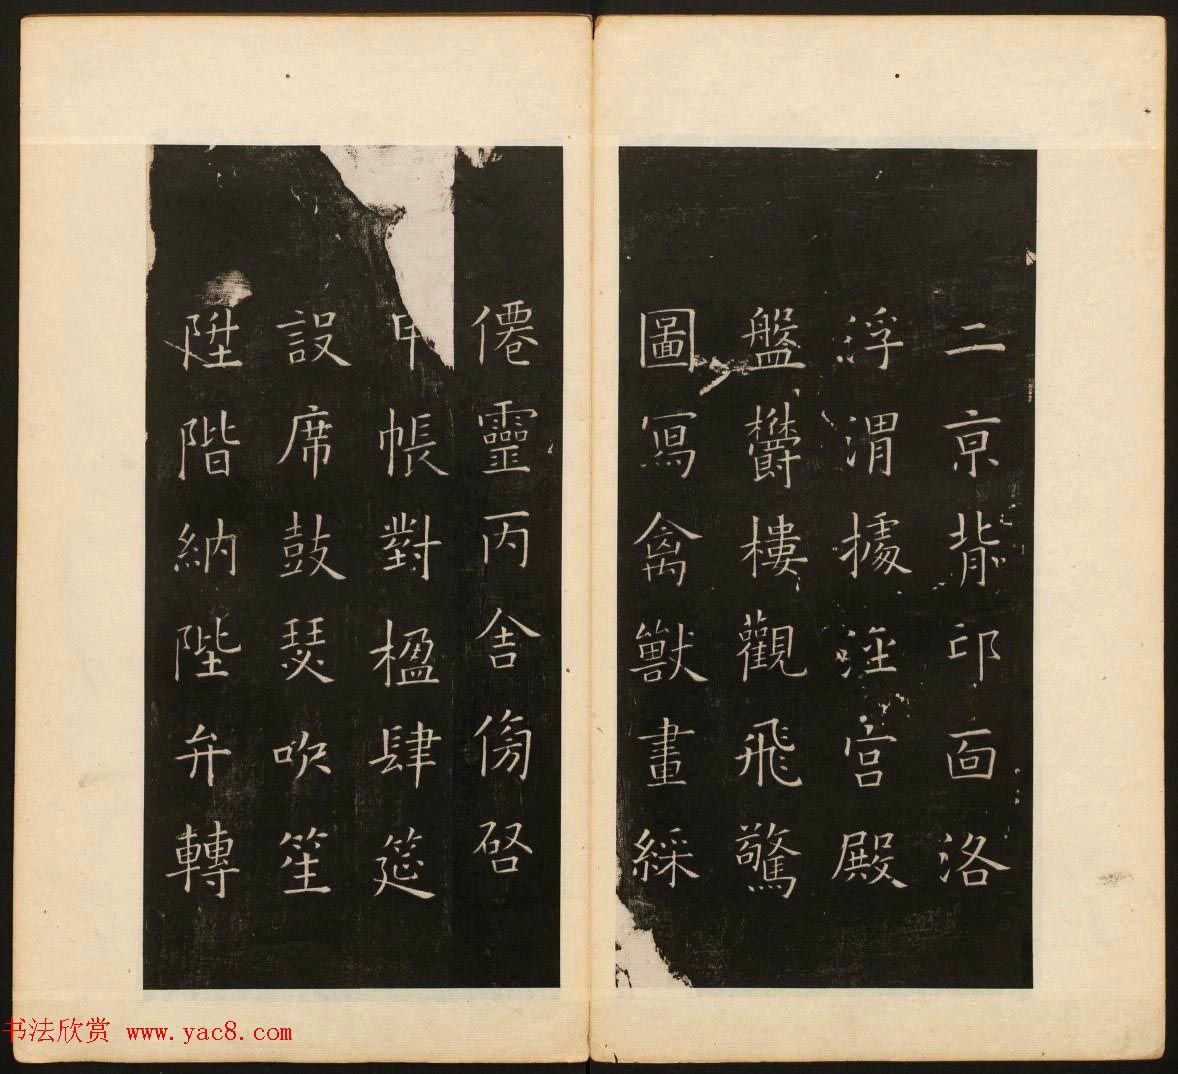 二京背邙面洛
浮渭據涇宮殿
盤欝樓觀飛驚
圖寫禽獸畫綵
僊靈丙舍傍啓
甲帳對楹肆筵
設席鼓瑟吹笙
陞階納陛弁轉
书法欣赏 www.yac8.com